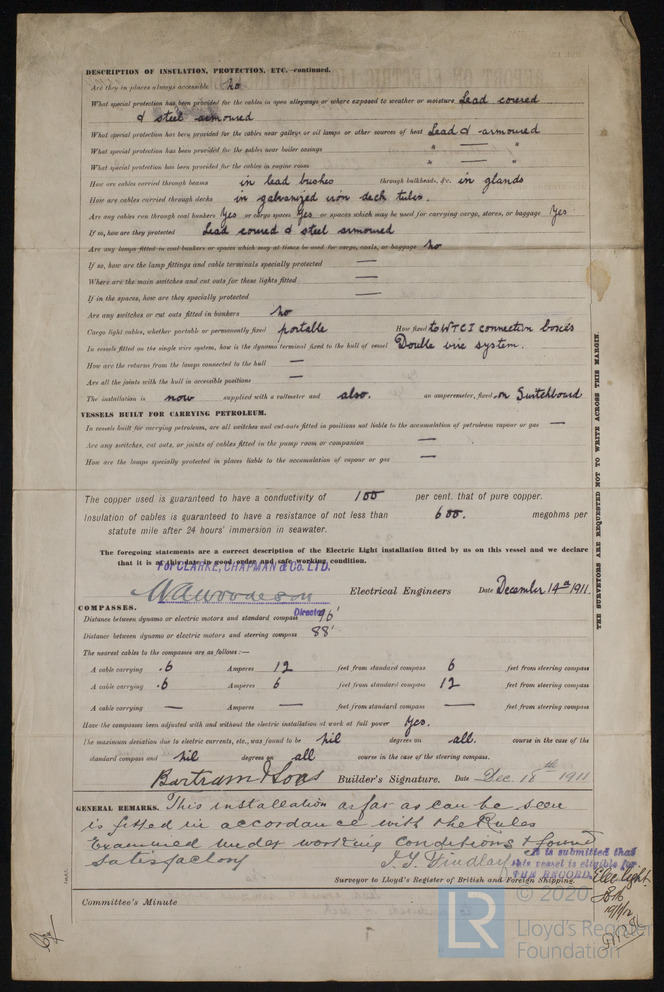 DESCRIPTION OF INSULATION, PROTECTION, ETC.—continued.
Are they in places always accessible no
What special protection has been provided for the cables in open alleyways or where exposed to weather or moisture Lead covered
& steel armoured
What special protection has been provided for the cables near galleys or oil lamps or other sources of heat Lead & armoured
What special protection has been provided for the cables near boiler casings " — "
What special protection has been provided for the cables in engine room " — "
How are cables carried through beams in lead bushes through bulkheads, &c. in glands
How are cables carried through decks in galvanized iron deck tubes.
Are any cables run through coal bunkers Yes or cargo spaces Yes or spaces which may be used for carrying cargo, stores, or baggage Yes
If so, how are they protected Lead covered & steel armoured
Are any lamps fitted in coal bunkers or spaces which may at times be used for cargo, coals, or baggage no
If so, how are the lamp fittings and cable terminals specially protected —
Where are the main switches and cut outs for these lights fitted —
If in the spaces, how are they specially protected —
Are any switches or cut outs fitted in bunkers no
Cargo light cables, whether portable or permanently fixed portable How fixed to WTCI connection boxes
In vessels fitted on the single wire system, how is the dynamo terminal fixed to the hull of vessel Double wire system.
How are the returns from the lamps connected to the hull —
Are all the joints with the hull in accessible positions —
The installation is now supplied with a voltmeter and also. an amperemeter, fixed on Switchboard
VESSELS BUILT FOR CARRYING PETROLEUM.
In vessels built for carrying petroleum, are all switches and cut-outs fitted in positions not liable to the accumulation of petroleum vapour or gas —
Are any switches, cut outs, or joints of cables fitted in the pump room or companion —
How are the lamps specially protected in places liable to the accumulation of vapour or gas —
The copper used is guaranteed to have a conductivity of 100 per cent. that of pure copper.
Insulation of cables is guaranteed to have a resistance of not less than 600. megohms per
statute mile after 24 hours' immersion in seawater.
The foregoing statements are a correct description of the Electric Light installation fitted by us on this vessel and we declare
that it is at this date in good order and safe working condition.
For CLARKE, CHAPMAN & Co. LTD.
Electrical Engineers Date December 14th 1911.
Director
COMPASSES.
Distance between dynamo or electric motors and standard compass 96'
Distance between dynamo or electric motors and steering compass 88'
The nearest cables to the compasses are as follows:—
A cable carrying .6 Amperes 12 feet from standard compass 6 feet from steering compass
A cable carrying .6 Amperes 6 feet from standard compass 12 feet from steering compass
A cable carrying — Amperes — feet from standard compass — feet from steering compass
Have the compasses been adjusted with and without the electric installation at work at full power Yes.
The maximum deviation due to electric currents, etc., was found to be nil degrees on all. course in the case of the
standard compass and nil degrees on all course in the case of the steering compass.
Bartram & Sons Builder's Signature. Date Dec. 18th 1911
GENERAL REMARKS. This installation as far as can be seen
is fitted in accordance with the Rules
Examined under working conditions & found
satisfactory
It is submitted that
this vessel is eligible for
THE RECORD. Elec Light.
J.G. Findlay
Surveyor to Lloyd's Register of British and Foreign Shipping.
19/1/12
Committee's Minute
THE SURVEYORS ARE REQUESTED NOT TO WRITE ACROSS THIS MARGIN.
© 2020
LR
Lloyd's Register
Foundation